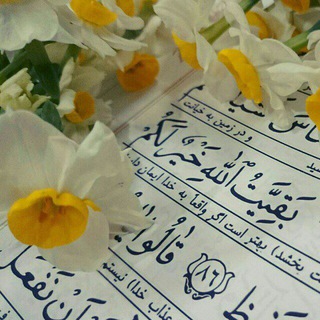 و در زمین به خیانت
بَقِيَّتُ اللهِ خَيْرٌ لَكُمْ
بخشد) بهتر است اگر واقعاً به خدا ایمان
۸۶ قالُوا
عذاب خدا) نیستم
اَنْ نَفْعَلَ